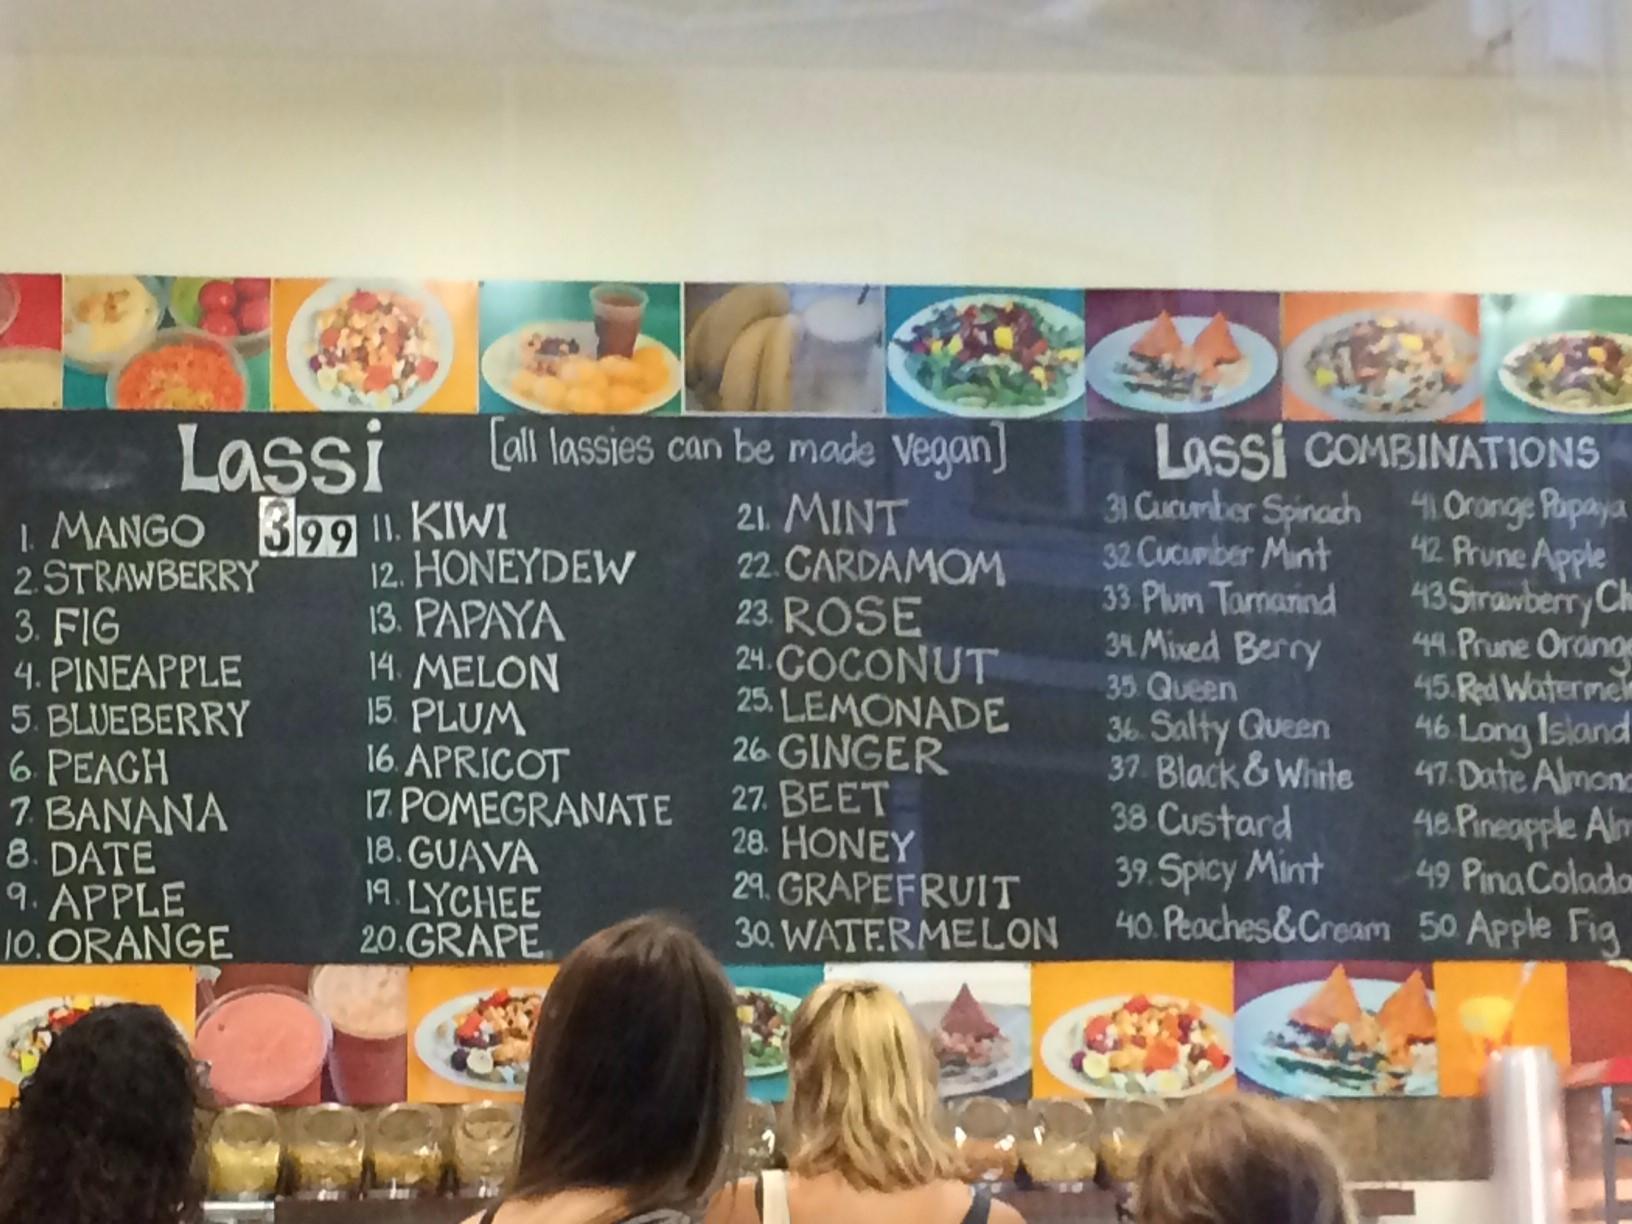 Lassi
[all lassies can be made vegan]
1. MANGO
399
2. STRAWBERRY
3. FIG
4. PINEAPPLE
5. BLUEBERRY
6. PEACH
7. BANANA
8. DATE
9. APPLE
10. ORANGE
11. KIWI
12. HONEYDEW
13. PAPAYA
14. MELON
15. PLUM
16. APRICOT
17. POMEGRANATE
18. GUAVA
19. LYCHEE
20. GRAPE
21. MINT
22. CARDAMOM
23. ROSE
24. COCONUT
25. LEMONADE
26. GINGER
27. BEET
28. HONEY
29. GRAPEFRUIT
30. WATERMELON
Lassi COMBINATIONS
31 Cucumber Spinach
32 Cucumber Mint
33. Plum Tamarind
34. Mixed Berry
35. Queen
36. Salty Queen
37. Black & White
38. Custard
39. Spicy Mint
40. Peaches & Cream
41 Orange Papaya
42. Prune Apple
43 Strawberry
44. Prune Orange
45. Red
46 Long Island
47. Date Almond
48. Pineapple
49 Pina Colada
50. Apple Fig